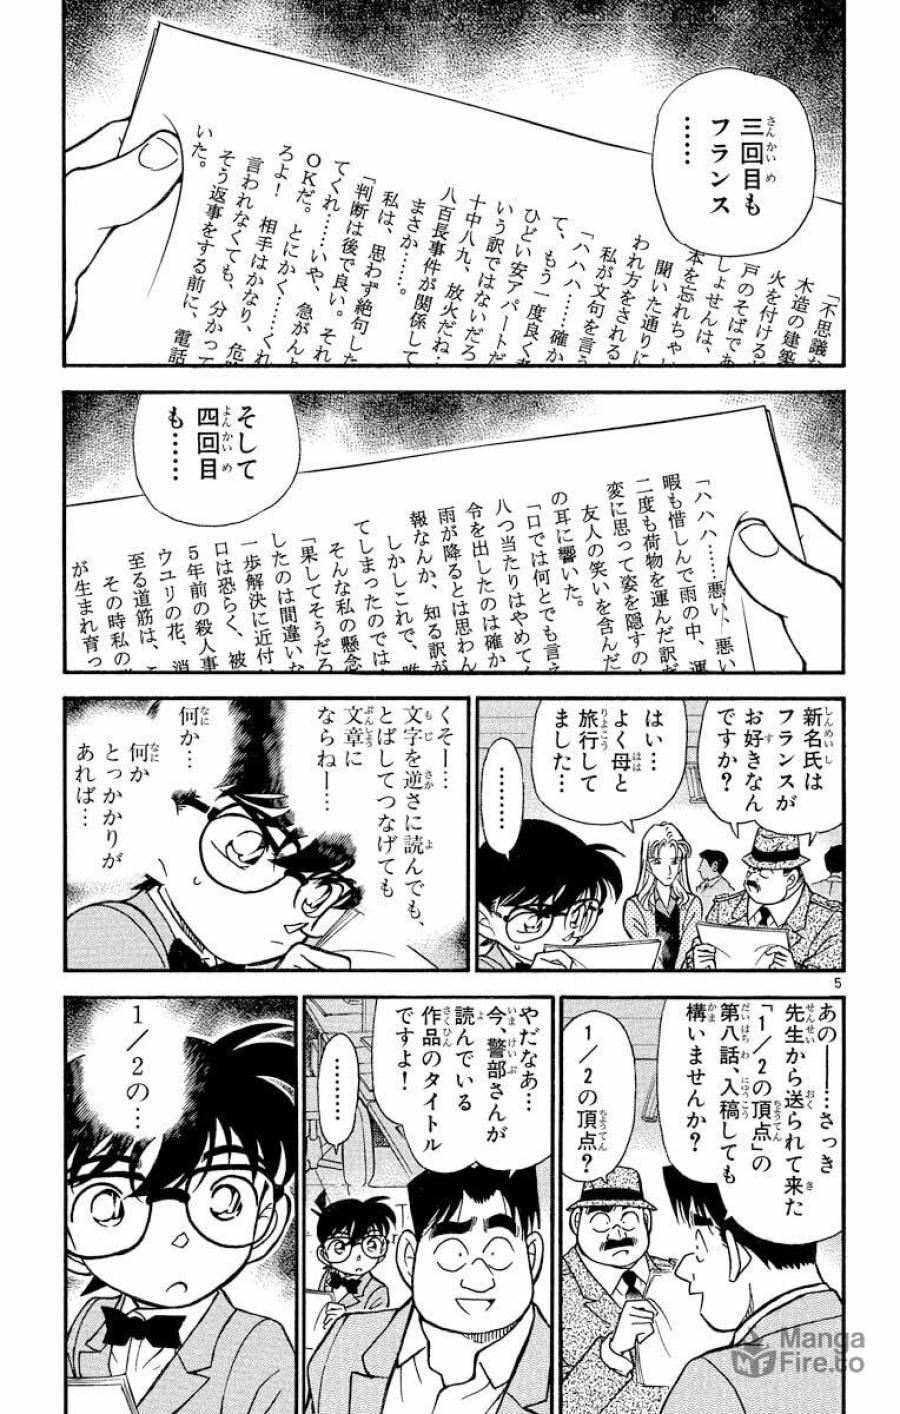 三回目も
フランス
……
「不思議な
木造の建築
火を付ける
戸のそばであ
しょせんは、
本を忘れちゃい
聞いた通りに
われ方をされる
私が文句を言う
「ハハハ……確か
て、もう一度良く考
ひどい安アパートだ
いう訳ではないだろ
十中八九、放火だね…
八百長事件が関係して
まさか……。
私は、思わず絶句した
「判断は後で良い。それ
てくれ……いや、急がんと
OKだ。とにかく……くれ
ろよ! 相手はかなり、危
言われなくても、分かって
そう返事をする前に、電話
いた。
そして
四回目
も……
「ハハハ……悪い、悪い
暇も惜しんで雨の中、運
二度も荷物を運んだ訳だ
変に思って姿を隠すの
友人の笑いを含んだ
の耳に響いた。
「口では何とでも言え
八つ当たりはやめてく
令を出したのは確か
雨が降るとは思わん
報なんか、知る訳が
しかしこれで、唯
てしまったのでは
そんな私の懸念
「果してそうだろ
したのは間違いな
一歩解決に近付
口は恐らく、被
5年前の殺人事
ウユリの花、消
至る道筋は、こ
その時私の
が生まれ育っ
新名氏は
フランスが
お好きなん
ですか?
はい…
よく母と
旅行して
ました…
………
くそー…
文字を逆さに読んでも、
とばしてつなげても
文章に
ならねー…
何か…
何か
とっかかりが
あれば…
5
あの——…さっき
先生から送られて来た
「1/2の頂点」の
第八話、入稿しても
構いませんか?
1/2の頂点?
やだなあ…
今、警部さんが
読んでいる
作品のタイトル
ですよ!
………
1/2の…
Manga
Fire.to